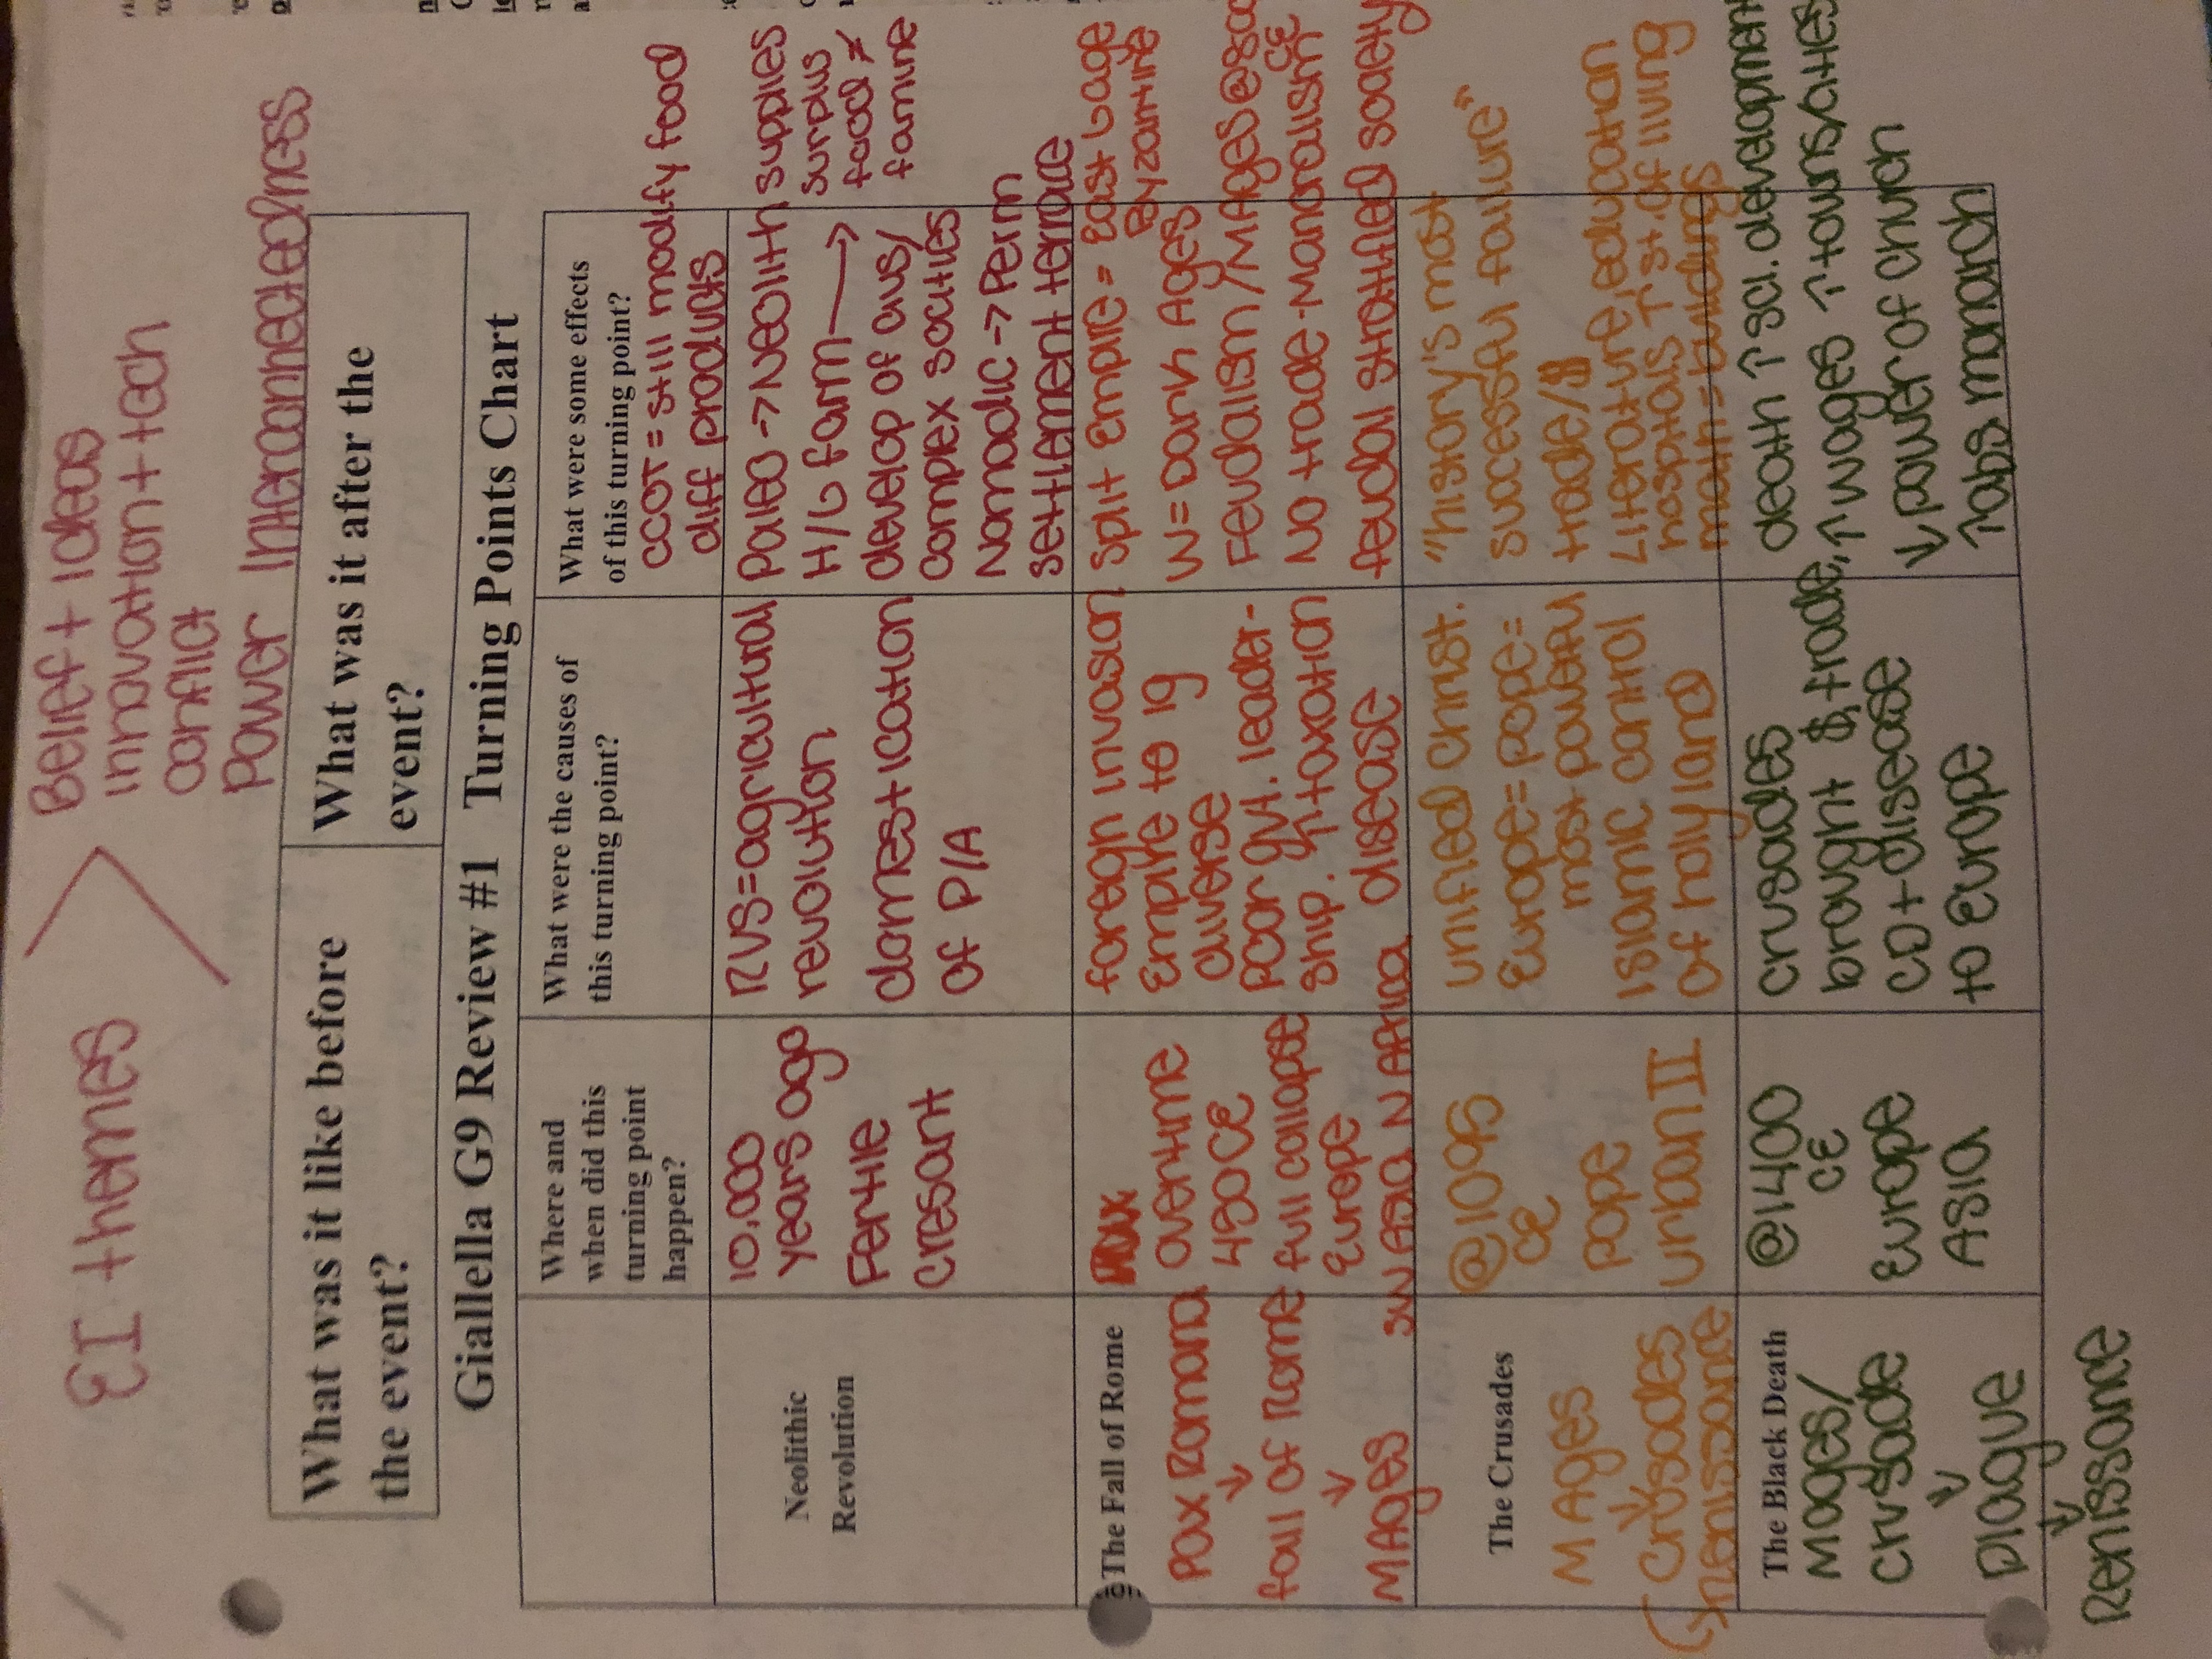 EI themes
Belief + ideas
innovation + tech
conflict
Power Interconnectedness
What was it like before
the event?
What was it after the
event?
Giallella G9 Review #1 Turning Points Chart
Where and
when did this
turning point
happen?
What were the causes of
this turning point?
What were some effects
of this turning point?
CCOT = still modify food
diff products
Neolithic
Revolution
10,000
years ago
Fertile
Cresant
RVS = agricultural
revolution
domestication
of P/A
Paleo → Neolith
H/G farm →
develop of avs/
complex socities
Nomadic → Perm
settlement terrace
supplies
surplus
food ≠
famine
The Fall of Rome
Pax Romana
↓
fall of Rome
↓
MAges
overtime
450 CE
full collapse
Europe
SW Asia N Africa
foreign invasion
Empire to lg
diverse
Poor gvt. leader-
ship. ↑ taxation
disease
Split Empire = East
Byzantine
W = Dark Ages
Feudalism / MAges
CE
No trade - Manoralism
feudal stratified society
The Crusades
M Ages
↓
Crusades
↳ renissance
@1095
CE
Pope
Urban II
unified christ.
Europe = pope =
most powerful
islamic control
of holy land
"history's most
successful failure"
trade/$
Literature, education
hospitals ↑ st. of living
math = buildings
The Black Death
Mages/
crusade
↓
Plague
↓
Renissance
@1400
CE
Europe
Asia
crusades
brought $, trade,
CD + disease
to Europe
death ↑ sci. development
↑ wages ↑ towns/cities
↓ power of church
↑ abs monarch